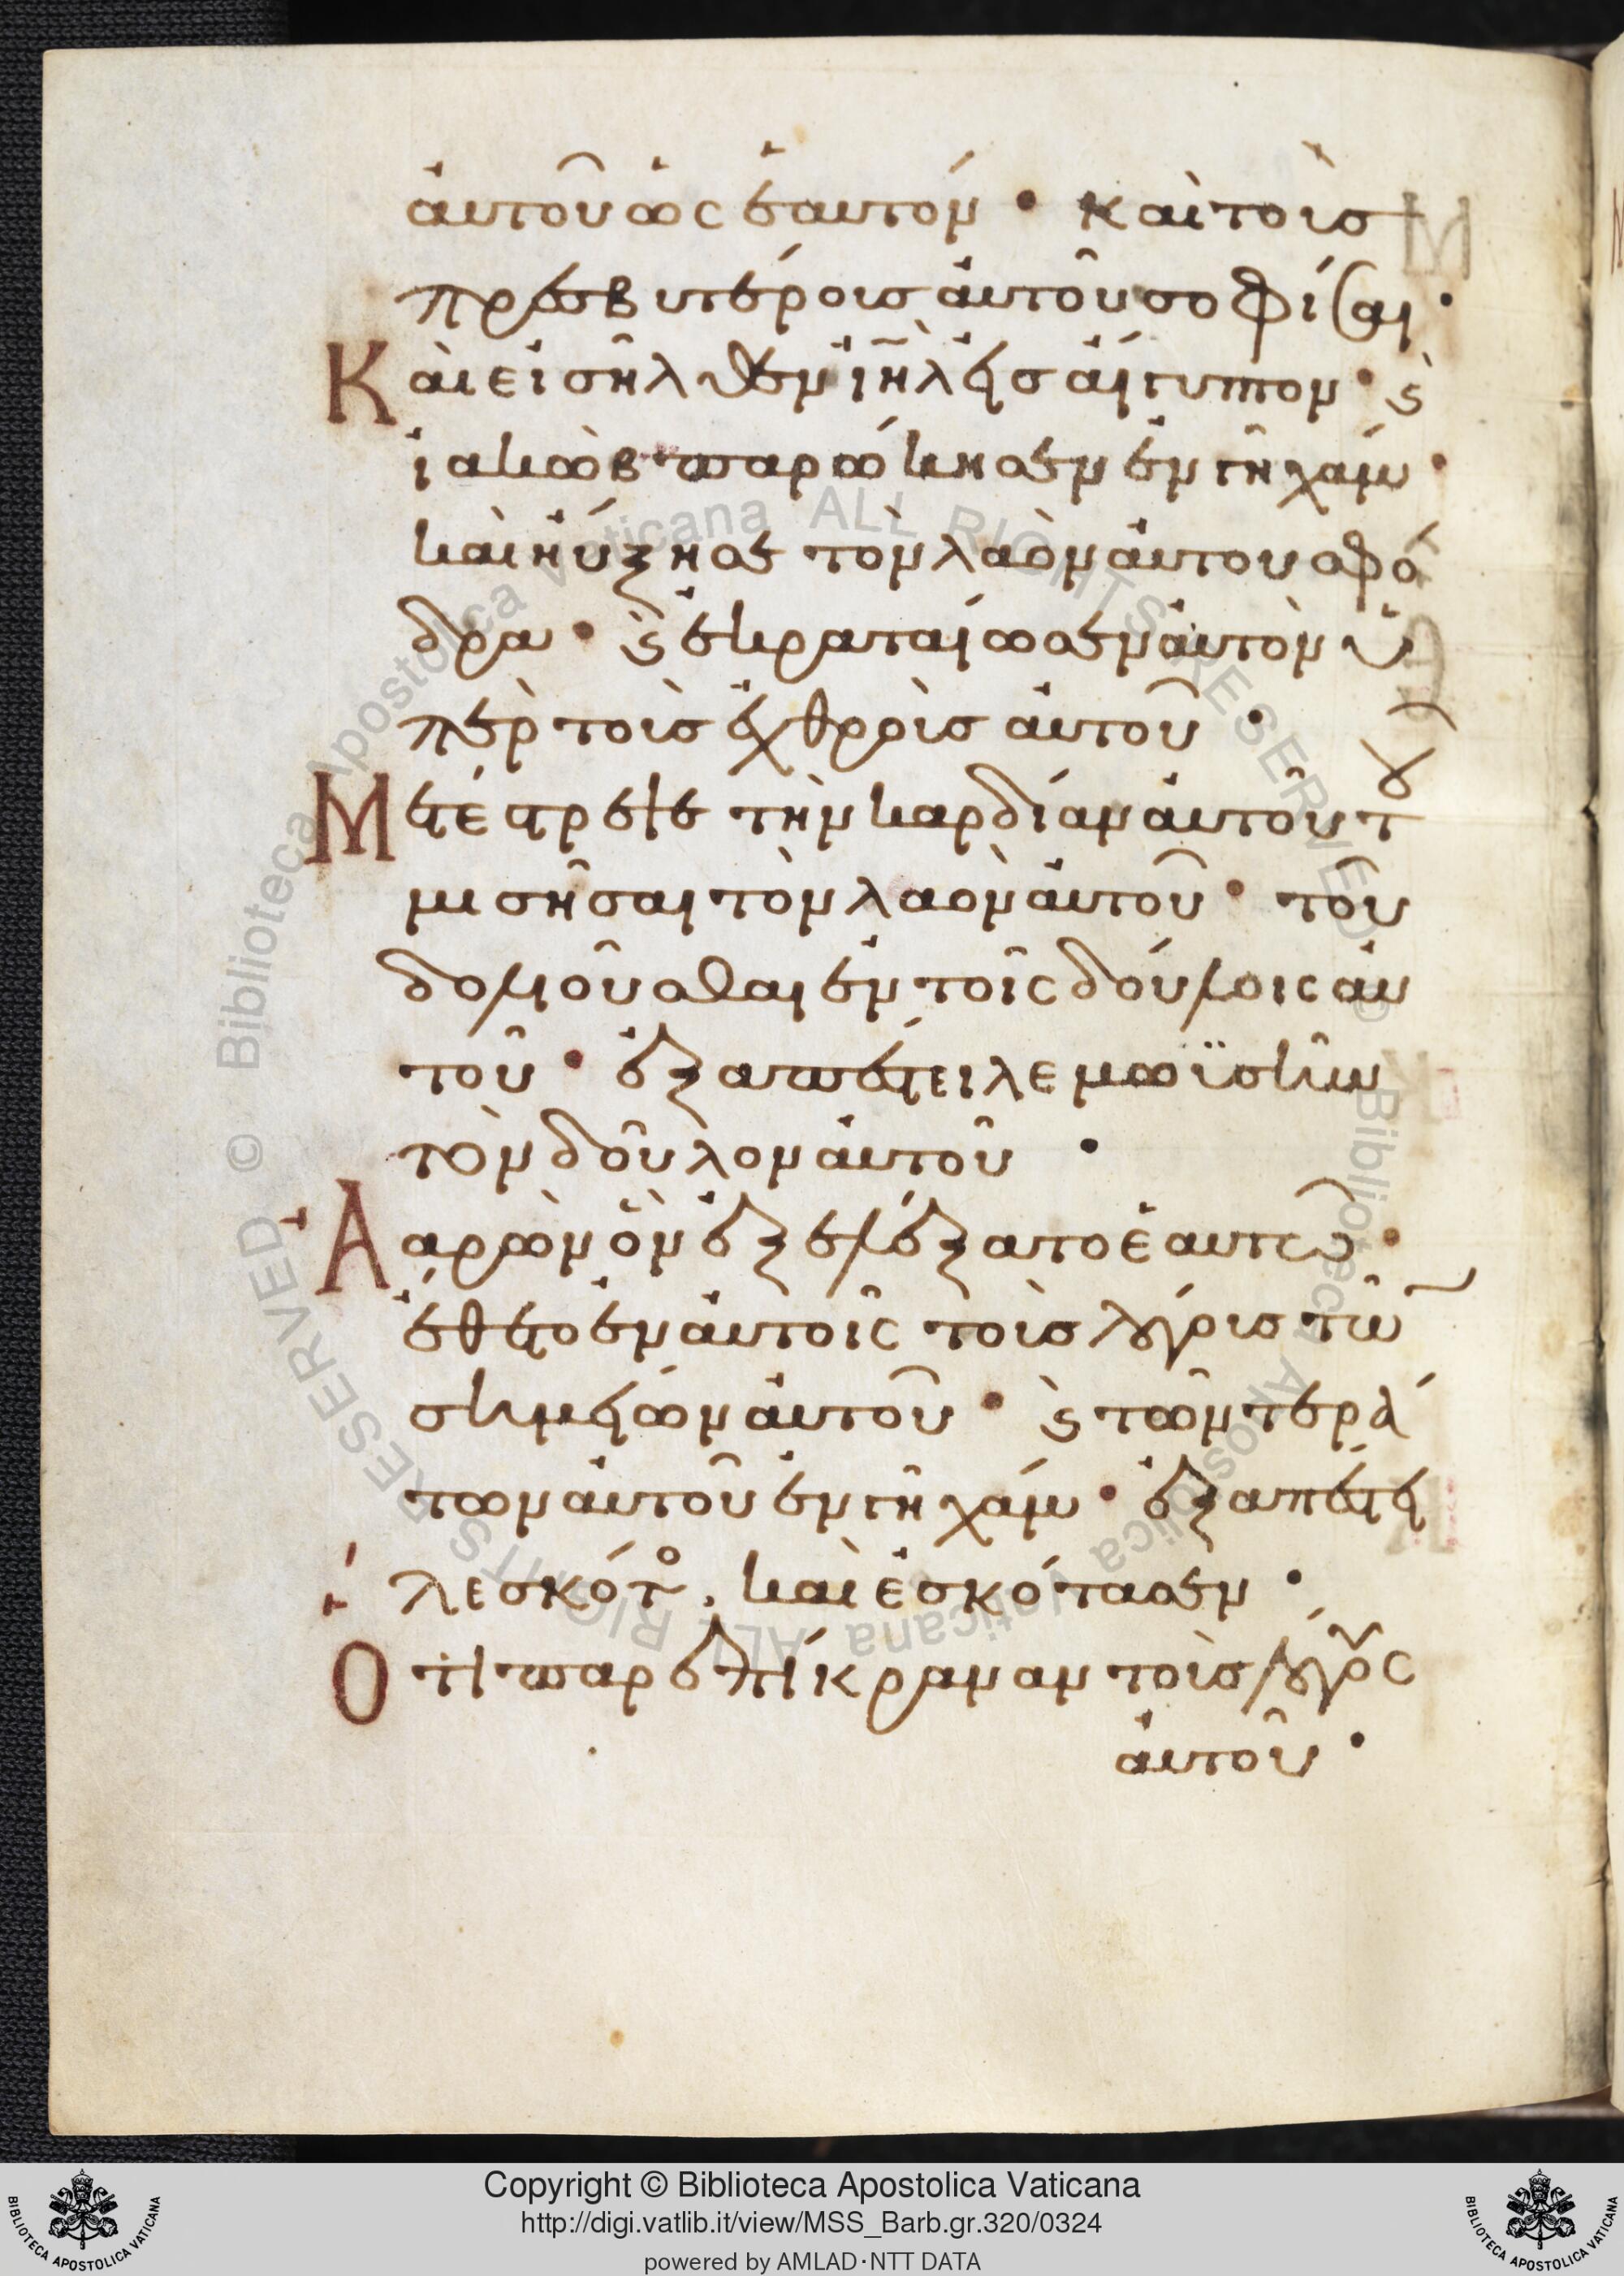 ἀυτοῦ ὡς ἑαυτόν · καὶ τοὺς
πρεσβυτέροις ἀυτοῦ σοφίσαι ·
Καὶ εἰσῆλθεν ἰῆλ εἰσ ἀίγυπτον · ϗ
ἰακὼβ παρώκησεν ἐν γῆ χάμ ·
καὶ ηὔξησε τὸν λαὸν ἀυτου σφό
δρα · ϗ ἐκραταίωσεν ἀυτὸν ὑ
πὲρ τοὺσ ἐχθροὺσ ἀυτοῦ ·
Μετέστρεψε τὴν καρδίαν ἀυτοῦ τοῦ
μισῆσαι τὸν λαὸν ἀυτοῦ · τοῦ
δολιοῦσθαι ἐν τοῖς δούλοις αυ
τοῦ · ἐξαπέστειλε μωϋσῆν
τὸν δοῦλον ἀυτοῦ ·
Ααρὼν ὃν ἐξελέξατο ἑαυτῶ ·
ἔθετο ἐν ἀυτοῖς τοὺσ λόγουσ τῶν
σημείων ἀυτοῦ · ϗ τῶν τερά
των ἀυτοῦ ἐν γῆ χάμ · ἐξαπέστει
λε σκότος, καὶ ἐσκότασεν ·
Οτι παρεπίκραναν τοὺσ λόγους
ἀυτοῦ ·
Copyright © Biblioteca Apostolica Vaticana
http://digi.vatlib.it/view/MSS_Barb.gr.320/0324
powered by AMLAD·NTT DATA